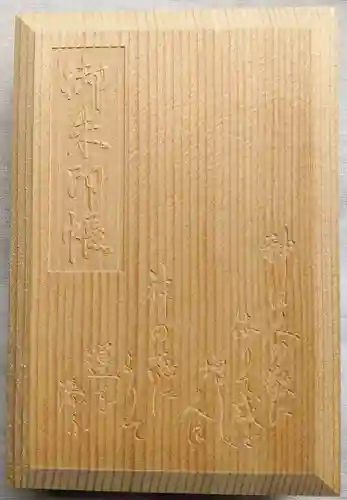 御朱印帳
神は人の敬に
よりて威を
増し
人は
神の徳に
よりて
運を
添ふ